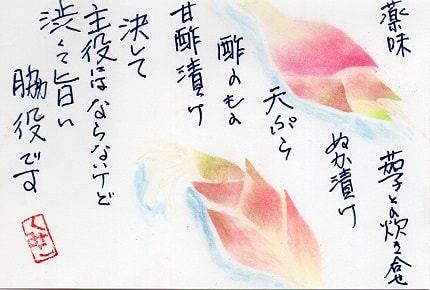 薬味
茄子との炊き合せ
ぬか漬け
天ぷら
酢のもの
甘酢漬け
決して
主役にはならないけど
渋くて旨い
脇役です
くみこ